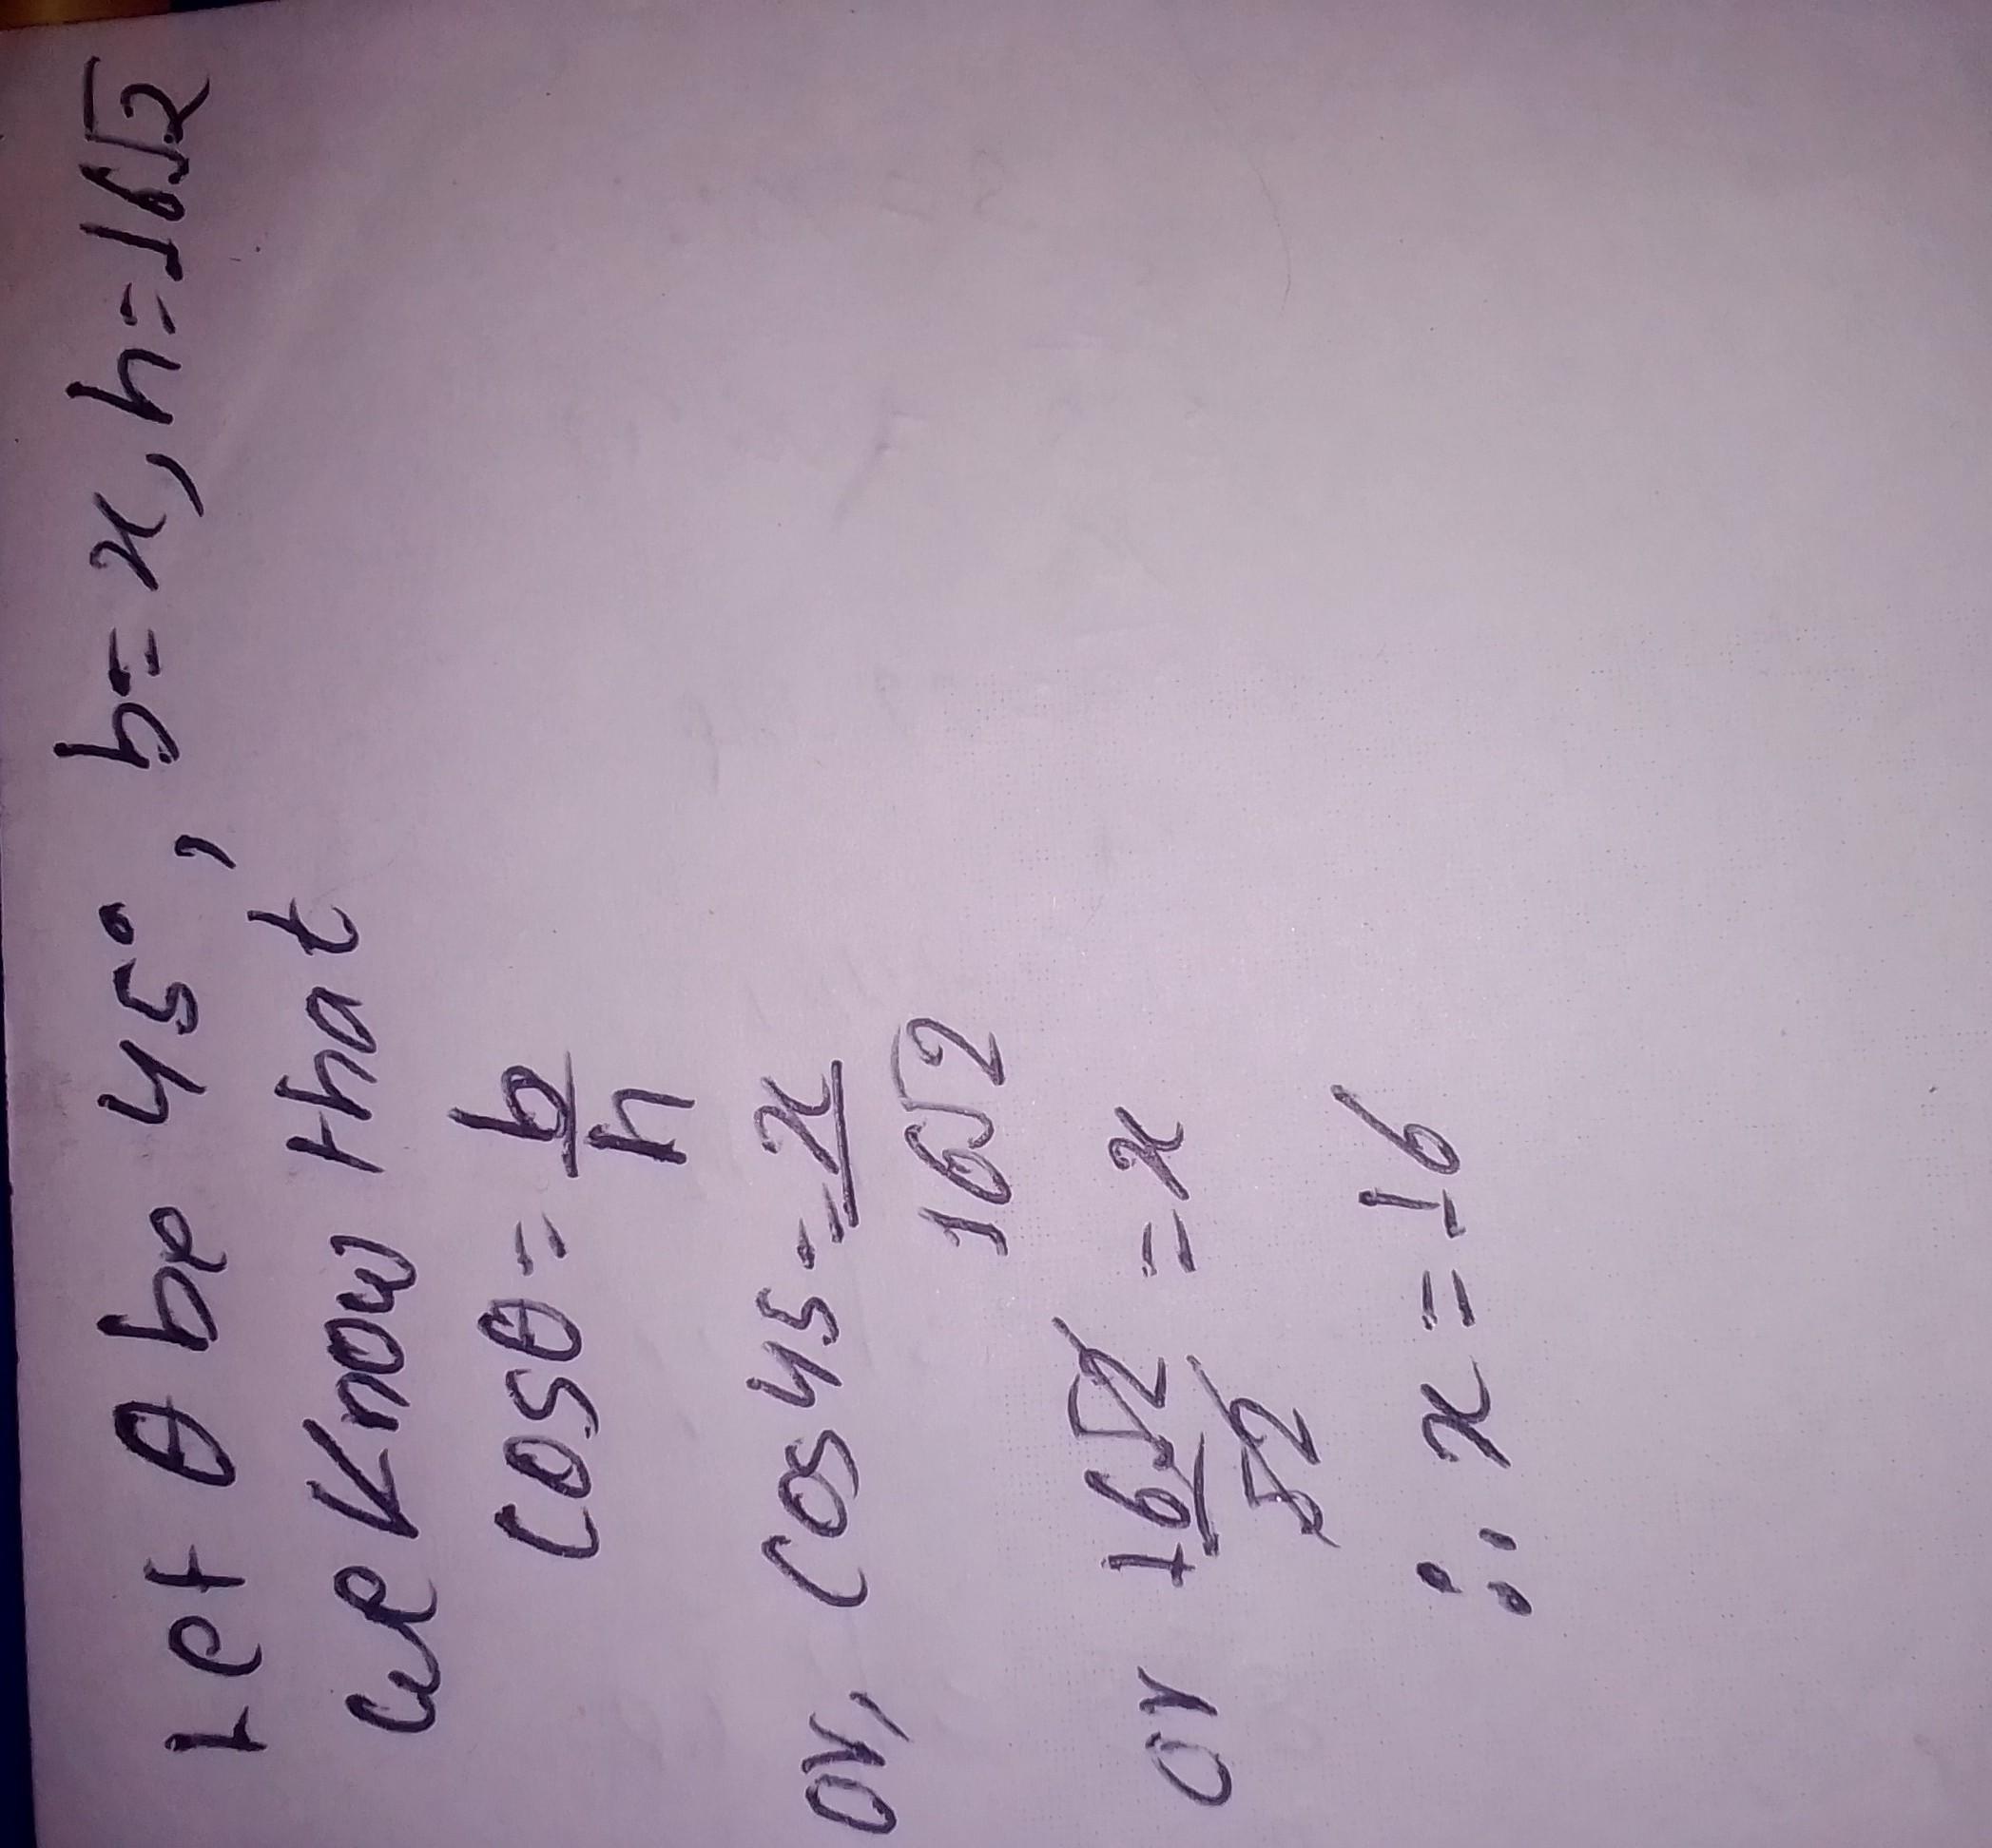 Let θ be 45°, b=x, h=16√2
we know that
cosθ = b/h
or, cos45 = x/16√2
or 16√2/√2 = x
∴ x = 16